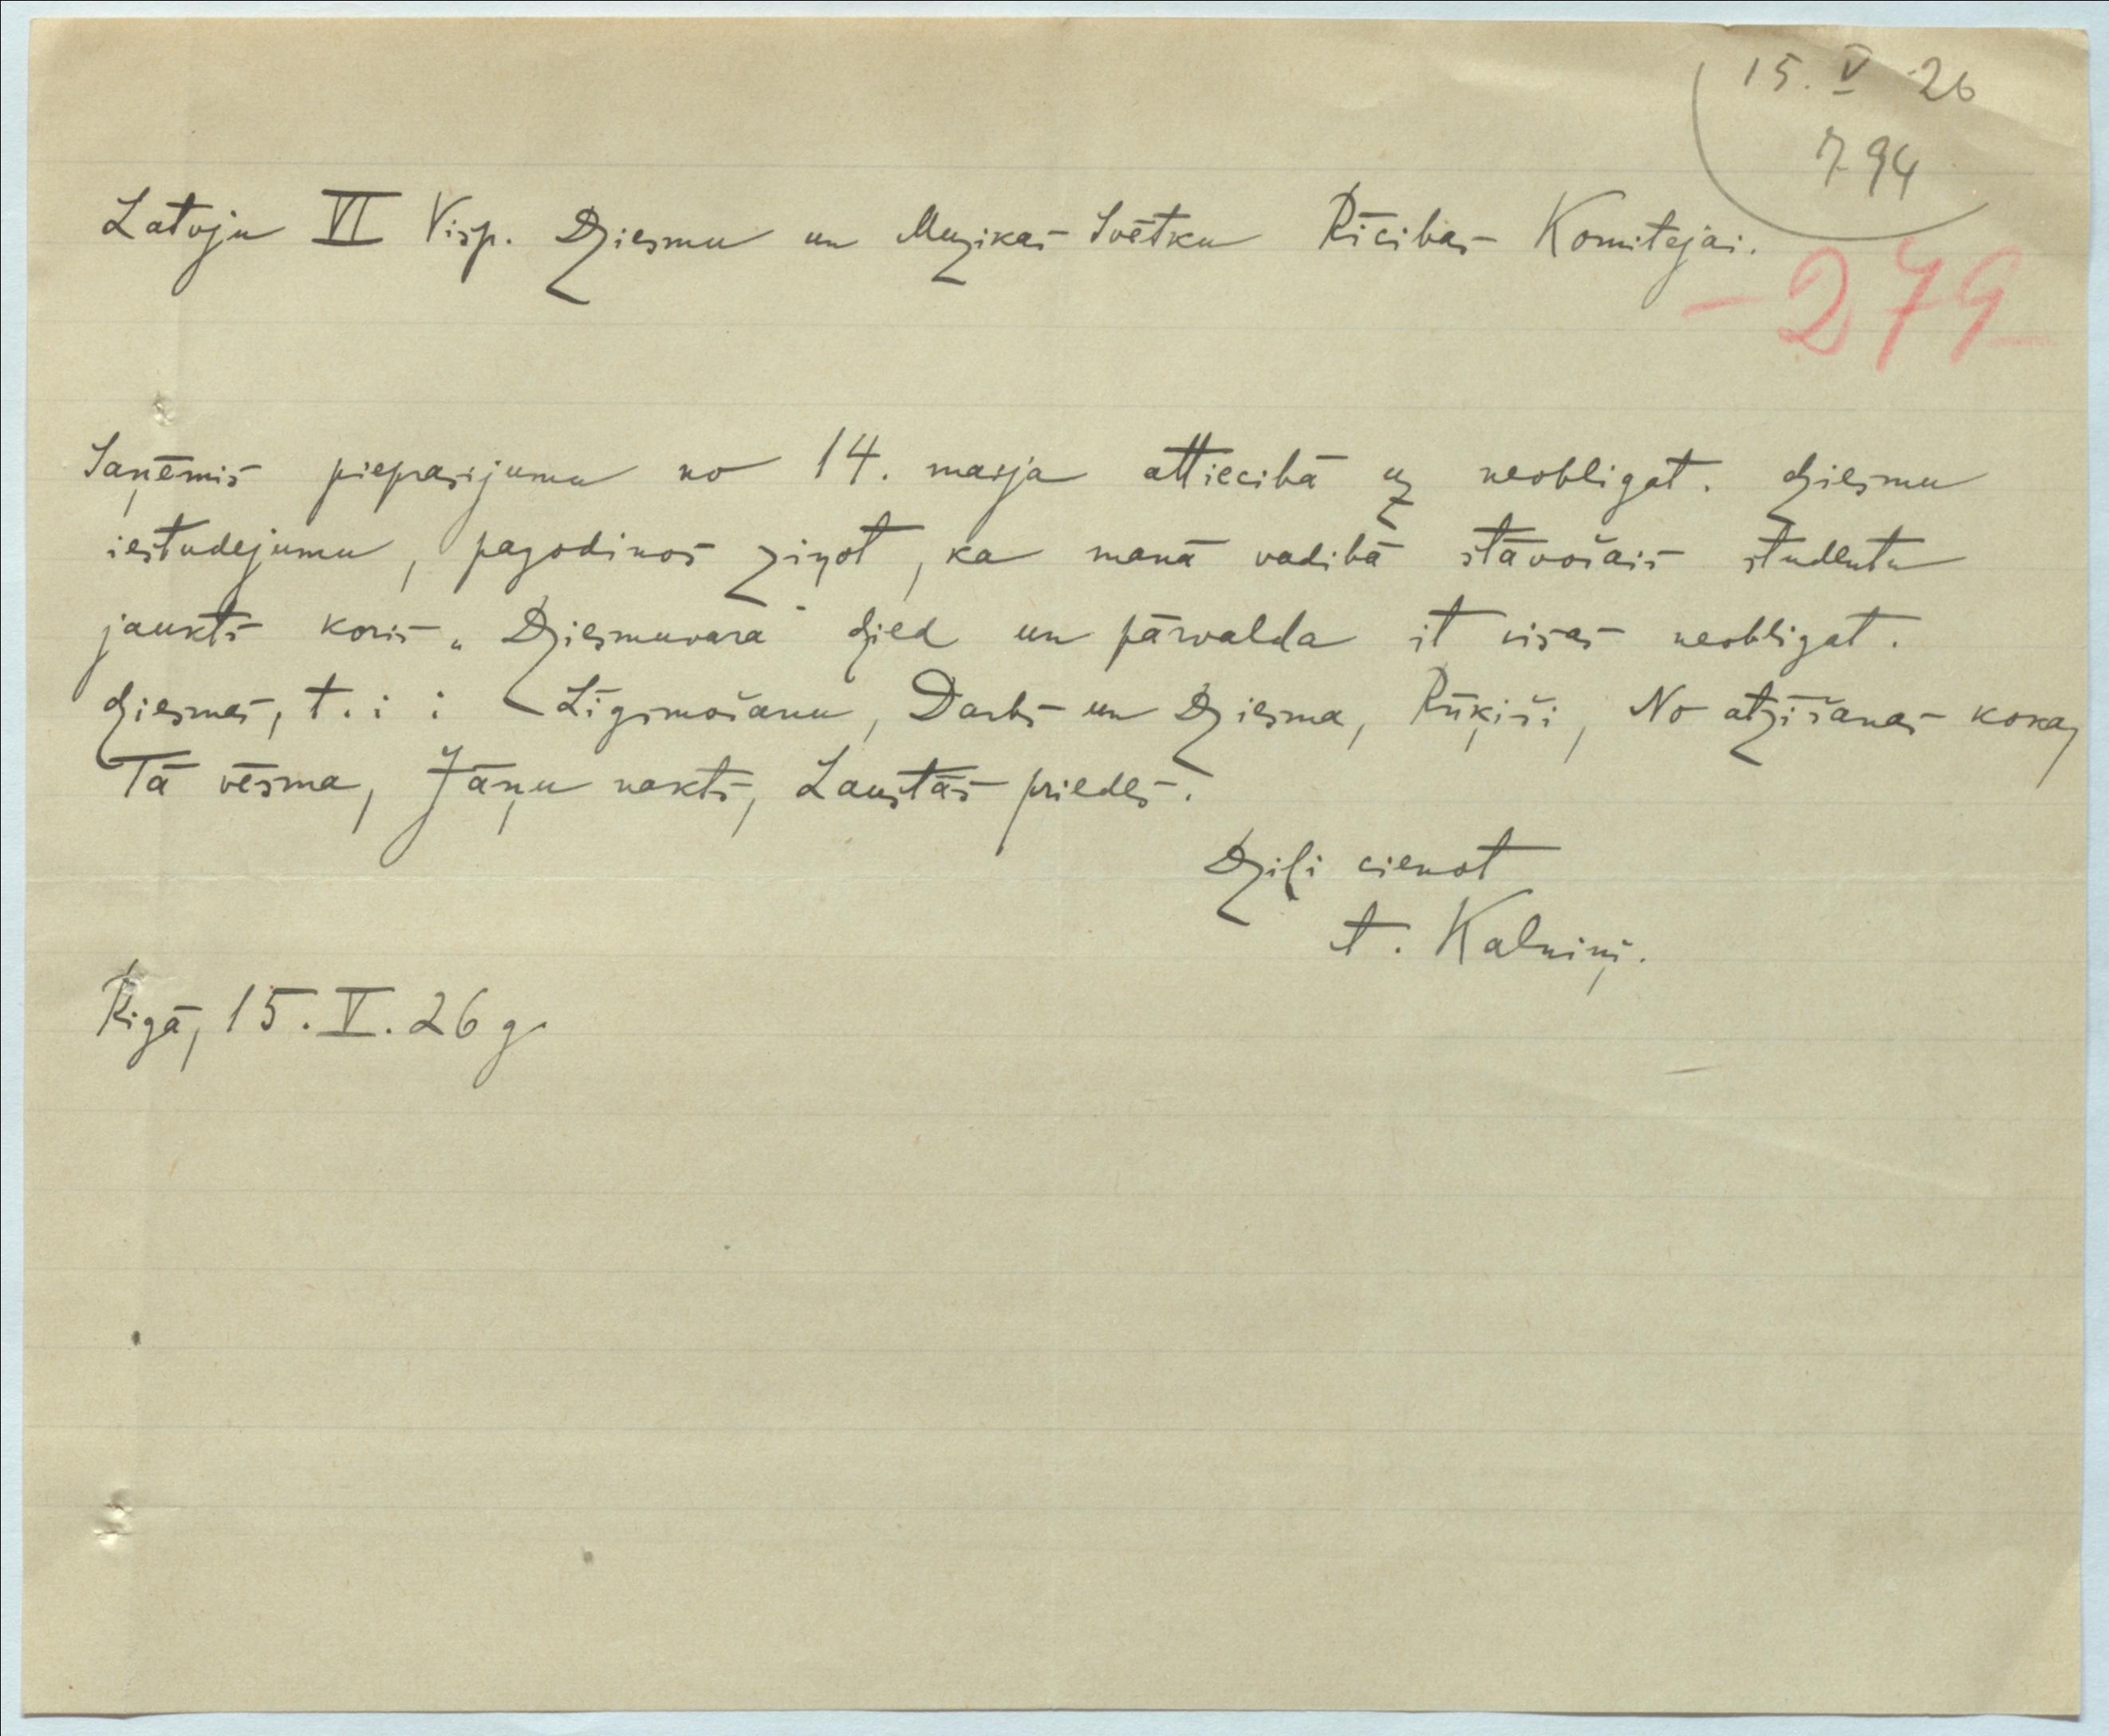 15. V 26
794
Latvju VI Visp. Dziesmu un Muzikas Svētku Rīcibas Komitejai.
-279
Saņēmis pieprasijumu no 14. maija attiecibā uz neobligat. dziesmu
iestudejumu, pagodinos ziņot, ka manā vadibā stāvošais studentu
jaukts koris „Dziesmuvara" dzied un pārvalda it visas neobligat.
dziesmas, t. i : Līgsmošanu, Darbs un Dziesma, Rūķiši, No atzīšanas koka,
Tā vēsma, Jāņu nakts, Lauztās priedes.
Dziļi cienot
A. Kalniņš.
Rigā, 15. V. 26 g.